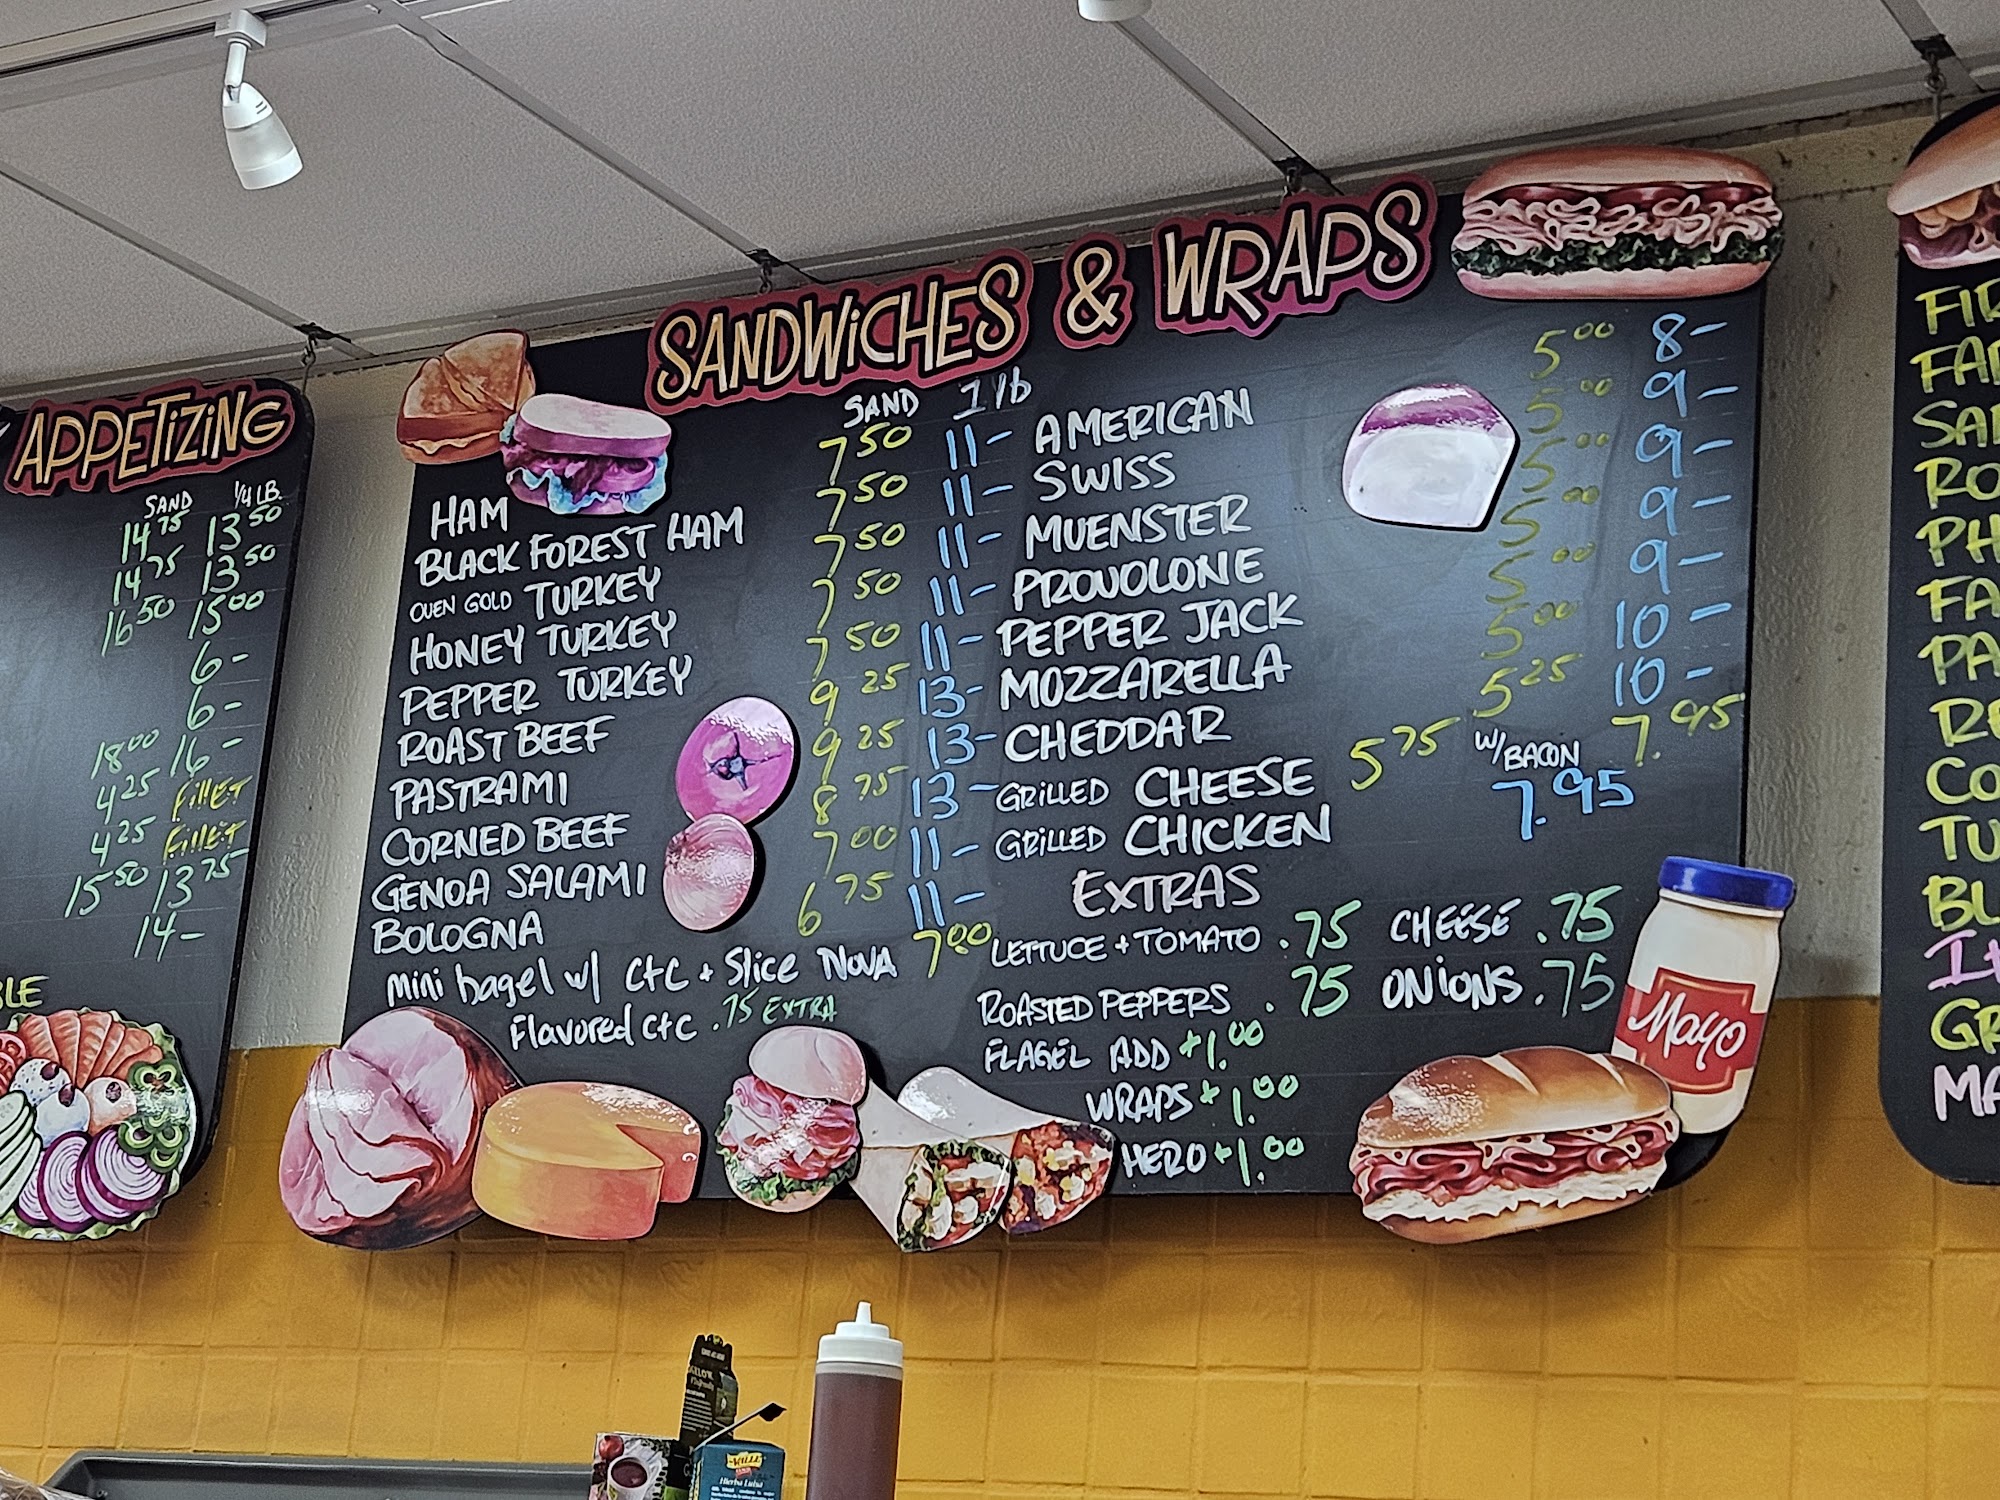 APPETIZING
SAND 1/4 LB.
14 75 13 50
14 75 13 50
16 50 15 00
6-
6-
18 00 16-
4 25 FILLET
4 25 FILLET
15 50 13 75
14-
SANDWICHES & WRAPS
SAND 1 lb
HAM 7 50 11-
BLACK FOREST HAM 7 50 11-
OVEN GOLD TURKEY 7 50 11-
HONEY TURKEY 7 50 11-
PEPPER TURKEY 7 50 11-
ROAST BEEF 9 25 13-
PASTRAMI 9 25 13-
CORNED BEEF 8 75 13-
GENOA SALAMI 7 00 11-
BOLOGNA 6 75 11-
Mini bagel w/ C+C + Slice NOVA 7.00
Flavored C+C .75 EXTRA
AMERICAN 5 00 8-
SWISS 5 00 9-
MUENSTER 5 00 9-
PROVOLONE 5 00 9-
PEPPER JACK 5 00 9-
MOZZARELLA 5 00 10-
CHEDDAR 5 25 10-
GRILLED CHEESE 5 75 W/BACON 7.95
GRILLED CHICKEN 7.95
EXTRAS
LETTUCE + TOMATO .75 CHEESE .75
ROASTED PEPPERS .75 ONIONS .75
FLAGEL ADD +1.00
WRAPS +1.00
HERO +1.00
Mayo
RO
PH
FA
PA
RE
CO
TU
BL
GR
MA
VALLE
Hierba Luisa